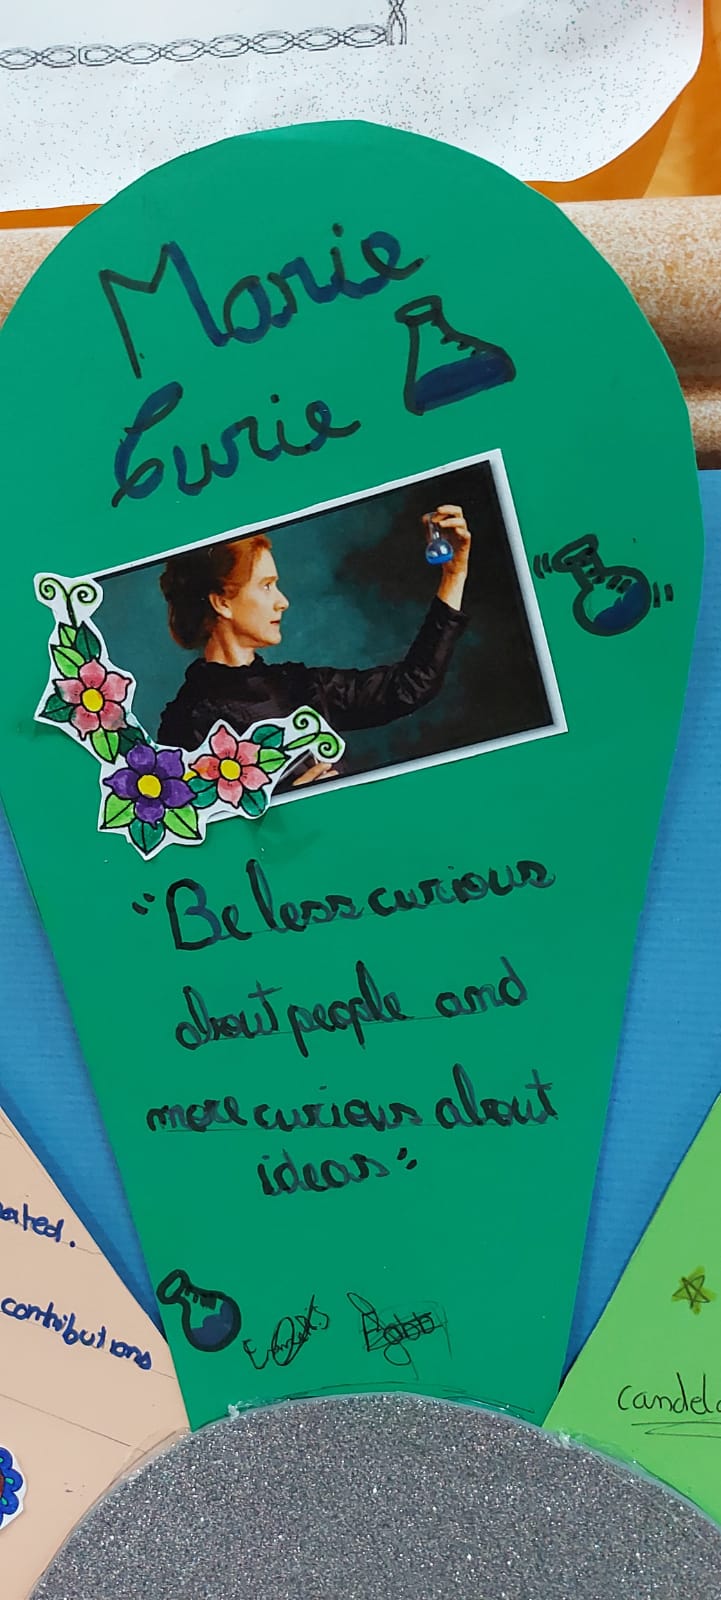 Marie
Curie
"Be less curious
about people and
more curious about
ideas"
ated.
contributions
candela